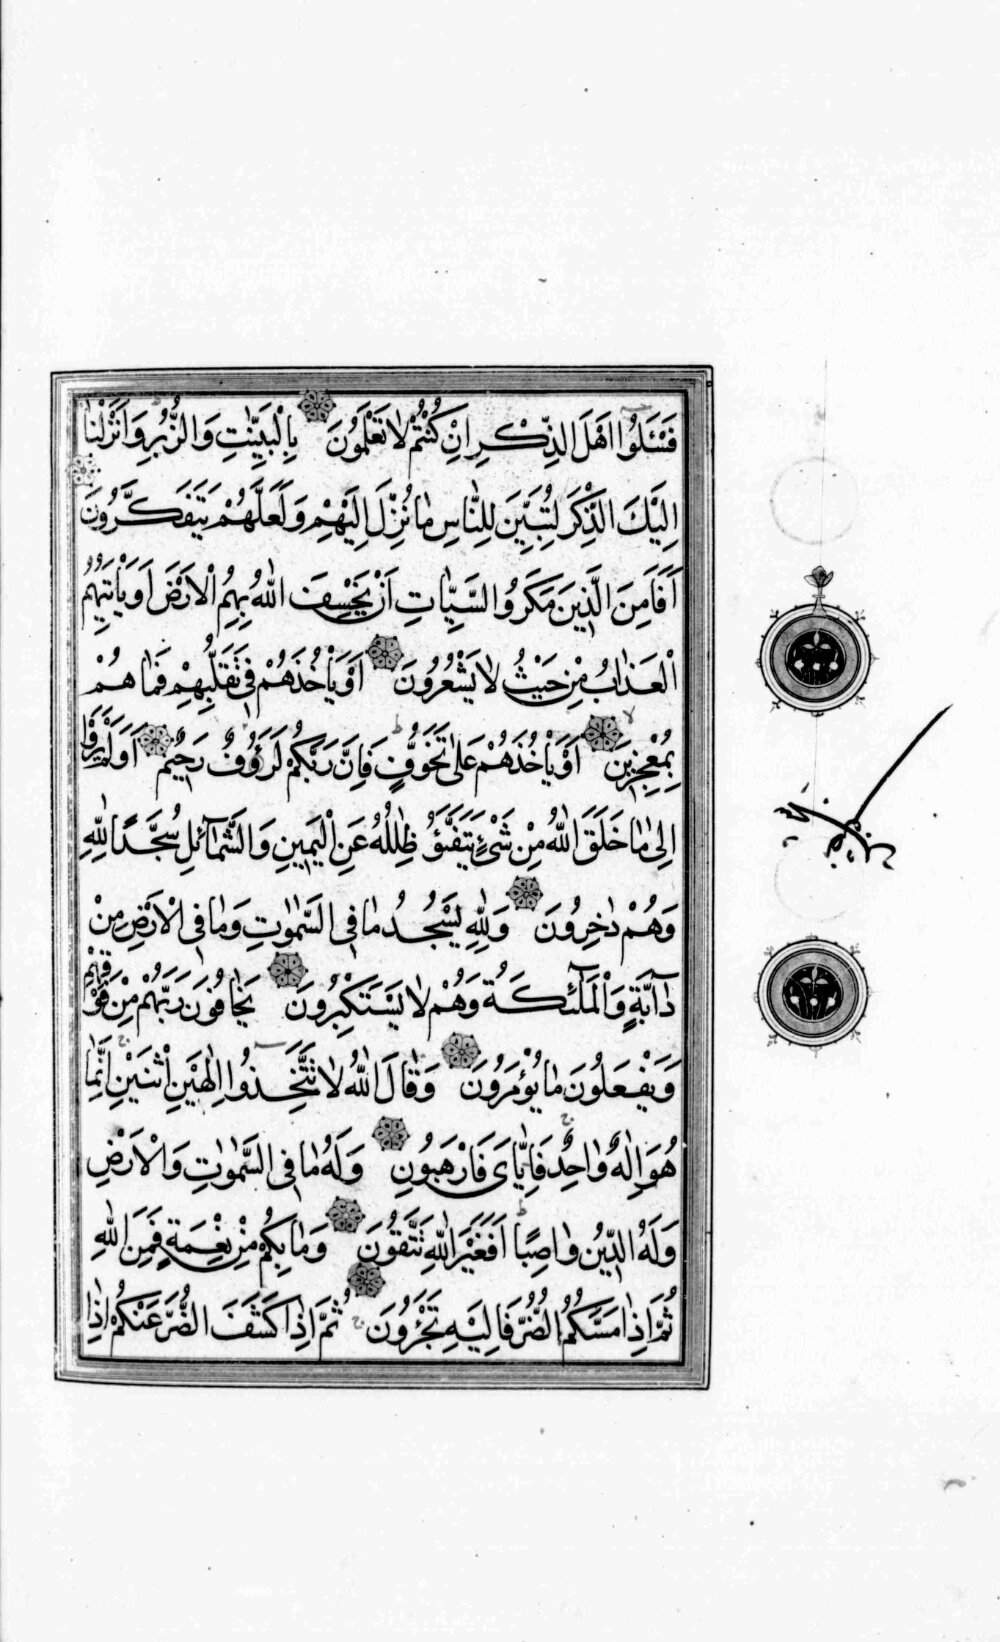 فَسْـَٔلُوا اَهْلَ الذِّكْرِ اِنْ كُنْتُمْ لَا تَعْلَمُونَ بِالْبَيِّنَٰتِ وَالزُّبُرِ وَاَنْزَلْنَا
اِلَيْكَ الذِّكْرَ لِتُبَيِّنَ لِلنَّاسِ مَا نُزِّلَ اِلَيْهِمْ وَلَعَلَّهُمْ يَتَفَكَّرُونَ
اَفَاَمِنَ الَّذِينَ مَكَرُوا السَّيِّاٰتِ اَنْ يَخْسِفَ اللّٰهُ بِهِمُ الْاَرْضَ اَوْ يَأْتِيَهُمُ
الْعَذَابُ مِنْ حَيْثُ لَا يَشْعُرُونَ اَوْ يَأْخُذَهُمْ فِي تَقَلُّبِهِمْ فَمَا هُمْ
بِمُعْجِزِينَ اَوْ يَأْخُذَهُمْ عَلَىٰ تَخَوُّفٍ فَاِنَّ رَبَّكُمْ لَرَؤُوفٌ رَحِيمٌ اَوَلَمْ يَرَوْا
اِلَىٰ مَا خَلَقَ اللّٰهُ مِنْ شَيْءٍ يَتَفَيَّؤُ ظِلٰلُهُ عَنِ الْيَمِينِ وَالشَّمَآئِلِ سُجَّدًا لِلّٰهِ
وَهُمْ دَاخِرُونَ وَلِلّٰهِ يَسْجُدُ مَا فِي السَّمٰوَاتِ وَمَا فِي الْاَرْضِ مِنْ
دَآبَّةٍ وَالْمَلٰٓئِكَةُ وَهُمْ لَا يَسْتَكْبِرُونَ يَخَافُونَ رَبَّهُمْ مِنْ فَوْقِهِمْ
وَيَفْعَلُونَ مَا يُؤْمَرُونَ وَقَالَ اللّٰهُ لَا تَتَّخِذُوا اِلٰهَيْنِ اثْنَيْنِ اِنَّمَا
هُوَ اِلٰهٌ وَاحِدٌ فَاِيَّايَ فَارْهَبُونِ وَلَهُ مَا فِي السَّمٰوَاتِ وَالْاَرْضِ
وَلَهُ الدِّينُ وَاصِبًا اَفَغَيْرَ اللّٰهِ تَتَّقُونَ وَمَا بِكُمْ مِنْ نِعْمَةٍ فَمِنَ اللّٰهِ
ثُمَّ اِذَا مَسَّكُمُ الضُّرُّ فَاِلَيْهِ تَجْـَٔرُونَ ثُمَّ اِذَا كَشَفَ الضُّرَّ عَنْكُمْ اِذَا